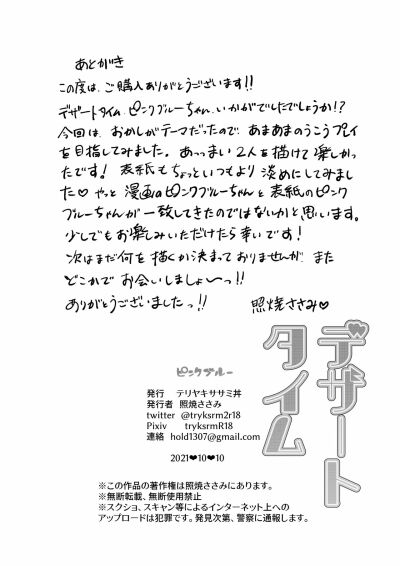 あとがき
この度は、ご購入ありがとうございます!!
デザートタイム、ピンクブルーちゃん、いかがでしたでしょうか!?
今回は、おかしがテーマだったので、あまあまのうこうプレイ
を目指してみました。あっっまい2人を描けて楽しかっ
たです! 表紙もちょっといつもより淡めにしてみまし
た♡ やっと漫画のピンクブルーちゃんと表紙のピンク
ブルーちゃんが一致してきたのではないかと思います。
少しでもお楽しみいただけたら幸いです!
次はまだ何を描くか決まっておりませんが、また
どこかでお会いしましょ〜っ!!
ありがとうございましたっ!!
照焼ささみ♡
デザート
タイム
ピンクブルー
発行 テリヤキササミ丼
発行者 照焼ささみ
twitter @tryksrm2r18
Pixiv tryksrmR18
連絡 hold1307@gmail.com
2021❤10❤10
※この作品の著作権は照焼ささみにあります。
※無断転載、無断使用禁止
※スクショ、スキャン等によるインターネット上への
アップロードは犯罪です。発見次第、警察に通報します。